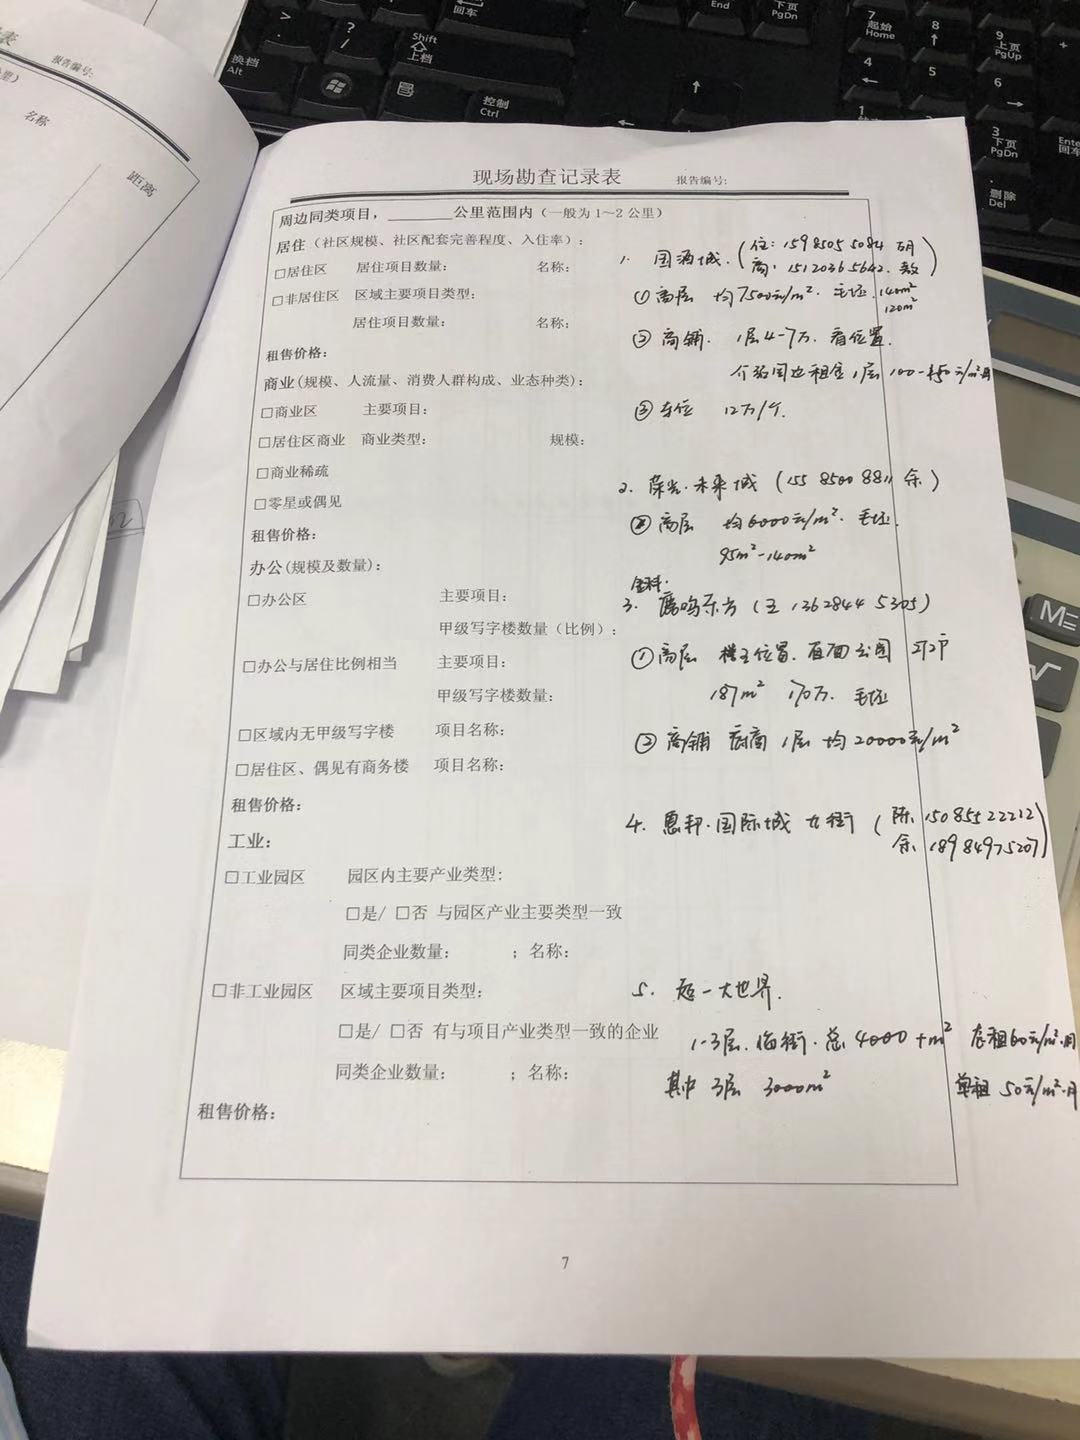 表
报告编号:
名称
距离
现场勘查记录表
报告编号:
周边同类项目，________公里范围内（一般为 1～2 公里）
居住（社区规模、社区配套完善程度、入住率）：
□居住区 居住项目数量： 名称：
□非居住区 区域主要项目类型：
居住项目数量： 名称：
租售价格：
商业(规模、人流量、消费人群构成、业态种类)：
□商业区 主要项目：
□居住区商业 商业类型： 规模：
□商业稀疏
□零星或偶见
租售价格：
办公(规模及数量)：
□办公区 主要项目：
甲级写字楼数量（比例）：
□办公与居住比例相当 主要项目：
甲级写字楼数量：
□区域内无甲级写字楼 项目名称：
□居住区、偶见有商务楼 项目名称：
租售价格：
工业：
□工业园区 园区内主要产业类型:
□是/ □否 与园区产业主要类型一致
同类企业数量： ；名称：
□非工业园区 区域主要项目类型：
□是/ □否 有与项目产业类型一致的企业
同类企业数量： ；名称：
租售价格：
1. 国酒城.
(住: 15985055084
商: 15120365642.
①高层 均7500元/m². 毛坯. 140m²
120m²
②商铺. 1层4-7万. 看位置.
租金1层 100-
元/m²月
③车位 12万/个.
2. 保利·未来城 (155 8500 8811 余)
高层 均6000元/m². 毛坯.
95m²-140m²
金科·
3. 鹿鸣东方 (王 13628445305)
①高层 楼王位置. 直面公园
187m² 170万. 毛坯
②商铺 1层 均20000元/m²
4. 惠邦·国际城 七街
(陈. 15085522212
余. 18984975207)
5. 一大世界.
1-3层. 临街. 总4000+m² 60元/m²·月
其中 3层 3000m² 单租 50元/m²·月
7